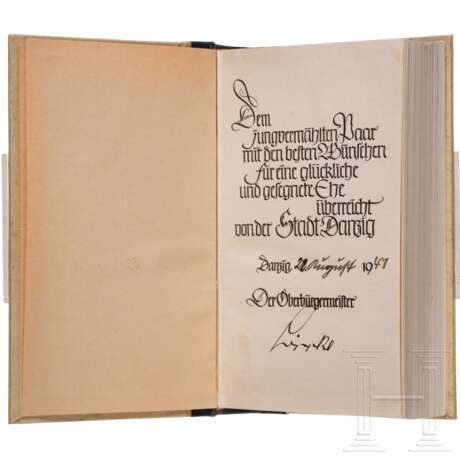 Dem
jungvermählten Paar
mit den besten Wünschen
für eine glückliche
und gesegnete Ehe
überreicht
von der Stadt Danzig
Danzig, August 1941
Der Oberbürgermeister